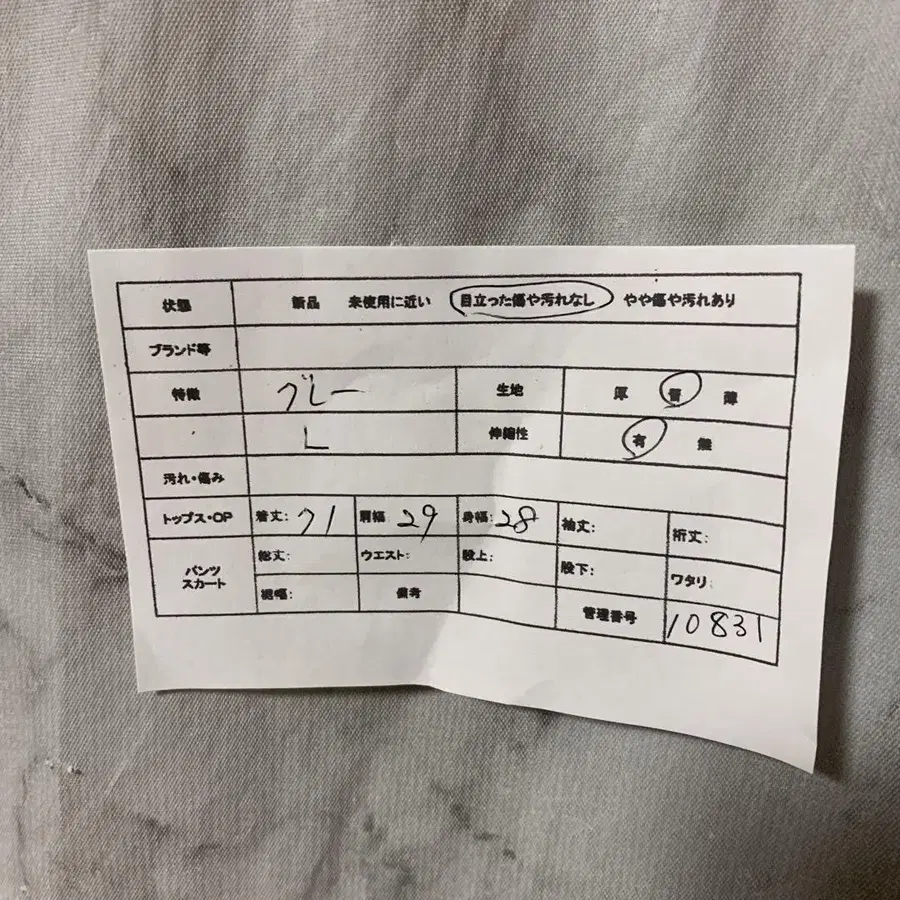 状態 新品 未使用に近い 目立った傷や汚れなし やや傷や汚れあり
ブランド等
特徴 グレー 生地 厚 普 薄
L 伸縮性 有 無
汚れ・傷み
トップス・OP 着丈: 71 肩幅: 29 身幅: 28 袖丈: 裄丈:
パンツ スカート 総丈: ウエスト: 股上: 股下: ワタリ:
裾幅: 備考 管理番号 10831